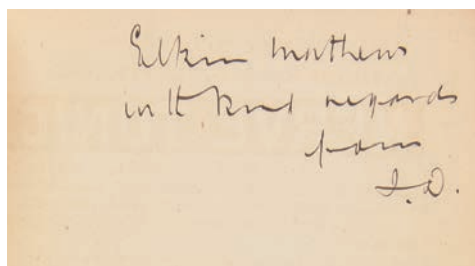 Elkin Mathews
with kind regards
from
J.D.